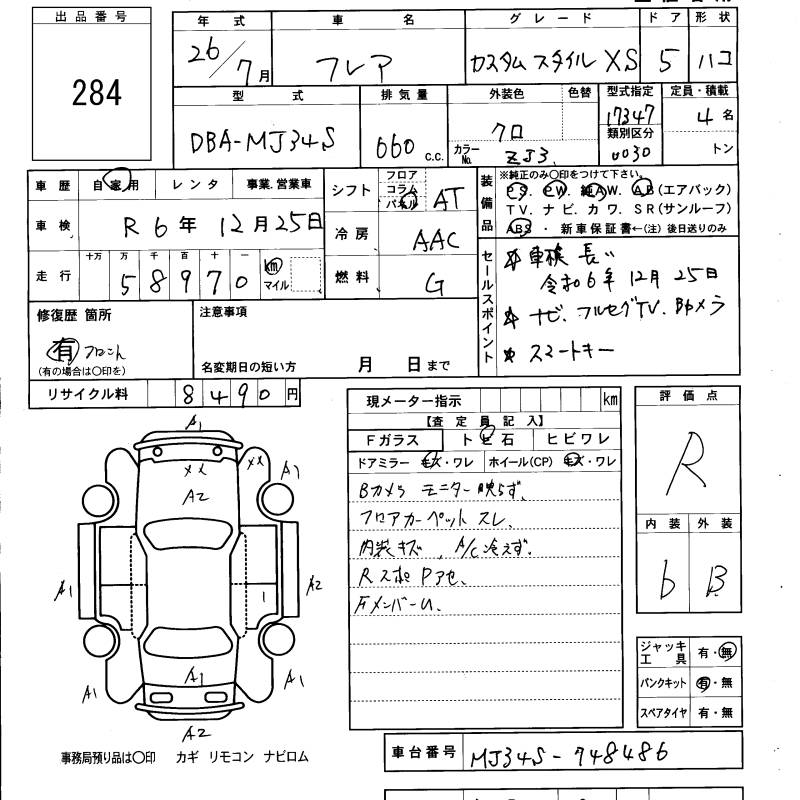 出品番号
284
年式 車名 グレード ドア 形状
26/7月 フレア カスタムスタイル XS 5 ハコ
型式 排気量 外装色 色替 型式指定 定員・積載
DBA-MJ34S 660 c.c. クロ 17347 4名
カラーNo. ZJ3 類別区分 0030 トン
車歴 自家用 レンタ 事業.営業車
車検 R6年 12月25日
走行 十万 万 千 百 十 一
58970 km マイル
シフト フロア コラム パネル AT
冷房 AAC
燃料 G
装備品 ※純正のみ○印をつけて下さい。
P.S. P.W. 純AW. AB(エアバック)
TV. ナビ. カワ. SR(サンルーフ)
ABS ・ 新車保証書←(注) 後日送りのみ
セールスポイント
車検 長い
令和6年 12月 25日
ナビ. フルセグTV. Bカメラ
スマートキー
修復歴 箇所
有 フロこん
(有の場合は○印を)
注意事項
名変期日の短い方 月 日まで
リサイクル料 8490円
現メーター指示 km
【査定員記入】
Fガラス トビ石 ヒビワレ
ドアミラー キズ・ワレ ホイール(CP) キズ・ワレ
Bカメラ モニター映らず.
フロアカーペット スレ.
内装キズ. A/C冷えず.
Rスポ Pアセ.
FメンバーU.
評価点
R
内装 外装
b B
ジャッキ工具 有・無
パンクキット 有・無
スペアタイヤ 有・無
A1
XX XX A1
A2
A1 1 A2
A1 A1 A1
A2
事務局預り品は○印 カギ リモコン ナビロム
車台番号 MJ34S-748486